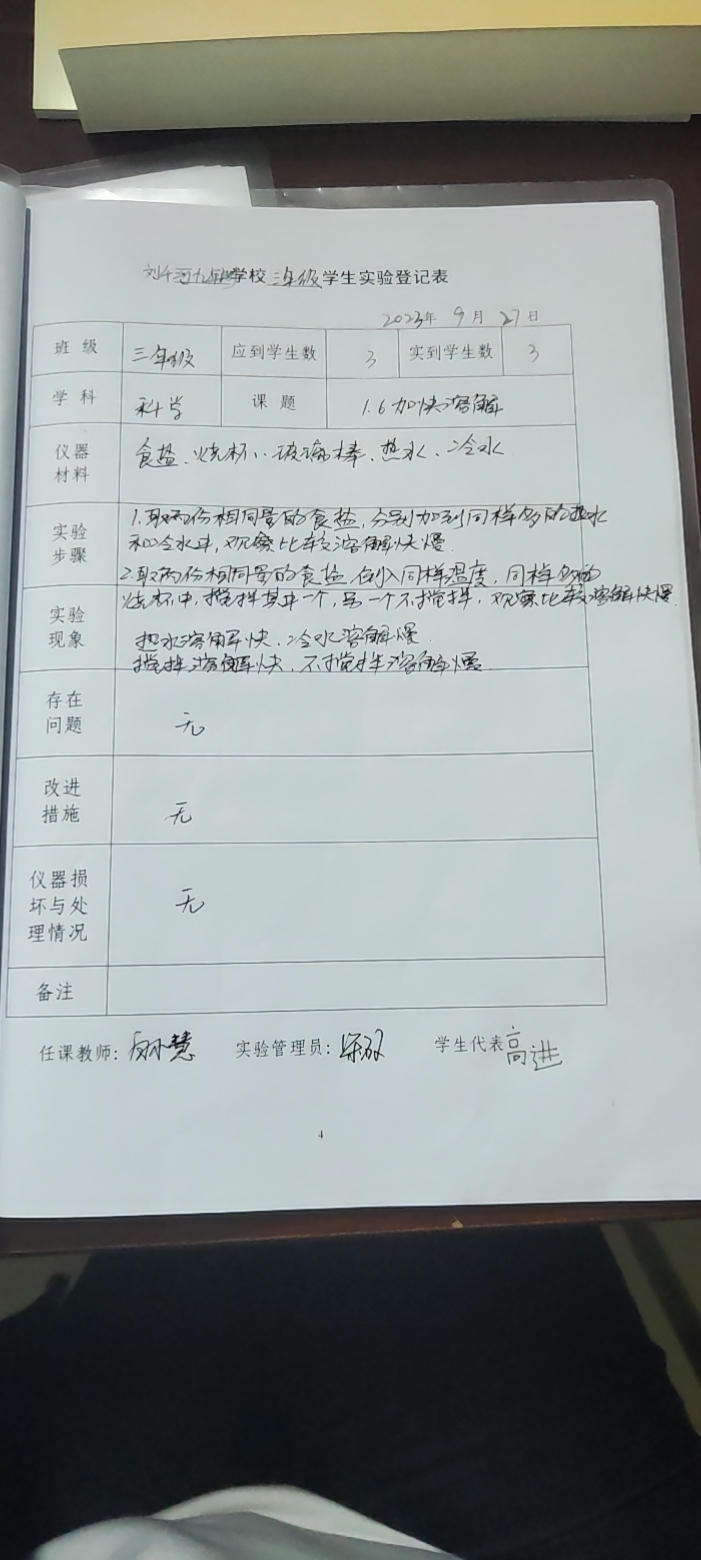 学校三年级学生实验登记表
2023年 9月 27日
班 级 三年级 应到学生数 3 实到学生数 3
学 科 科学 课 题 1.6 加快溶解
仪器材料 食盐、烧杯、玻璃棒、热水、冷水
实验步骤
1.取两份相同量的食盐,分别加到同样多的热水
和冷水中,观察比较溶解快慢.
2.取两份相同量的食盐,倒入同样温度,同样多的
烧杯中,搅拌其中一个,另一个不搅拌,观察比较溶解快慢.
实验现象
热水溶解快,冷水溶解慢.
搅拌溶解快,不搅拌溶解慢.
存在问题 无
改进措施 无
仪器损坏与处理情况 无
备注
任课教师: 慧 实验管理员: 学生代表: 高进
4